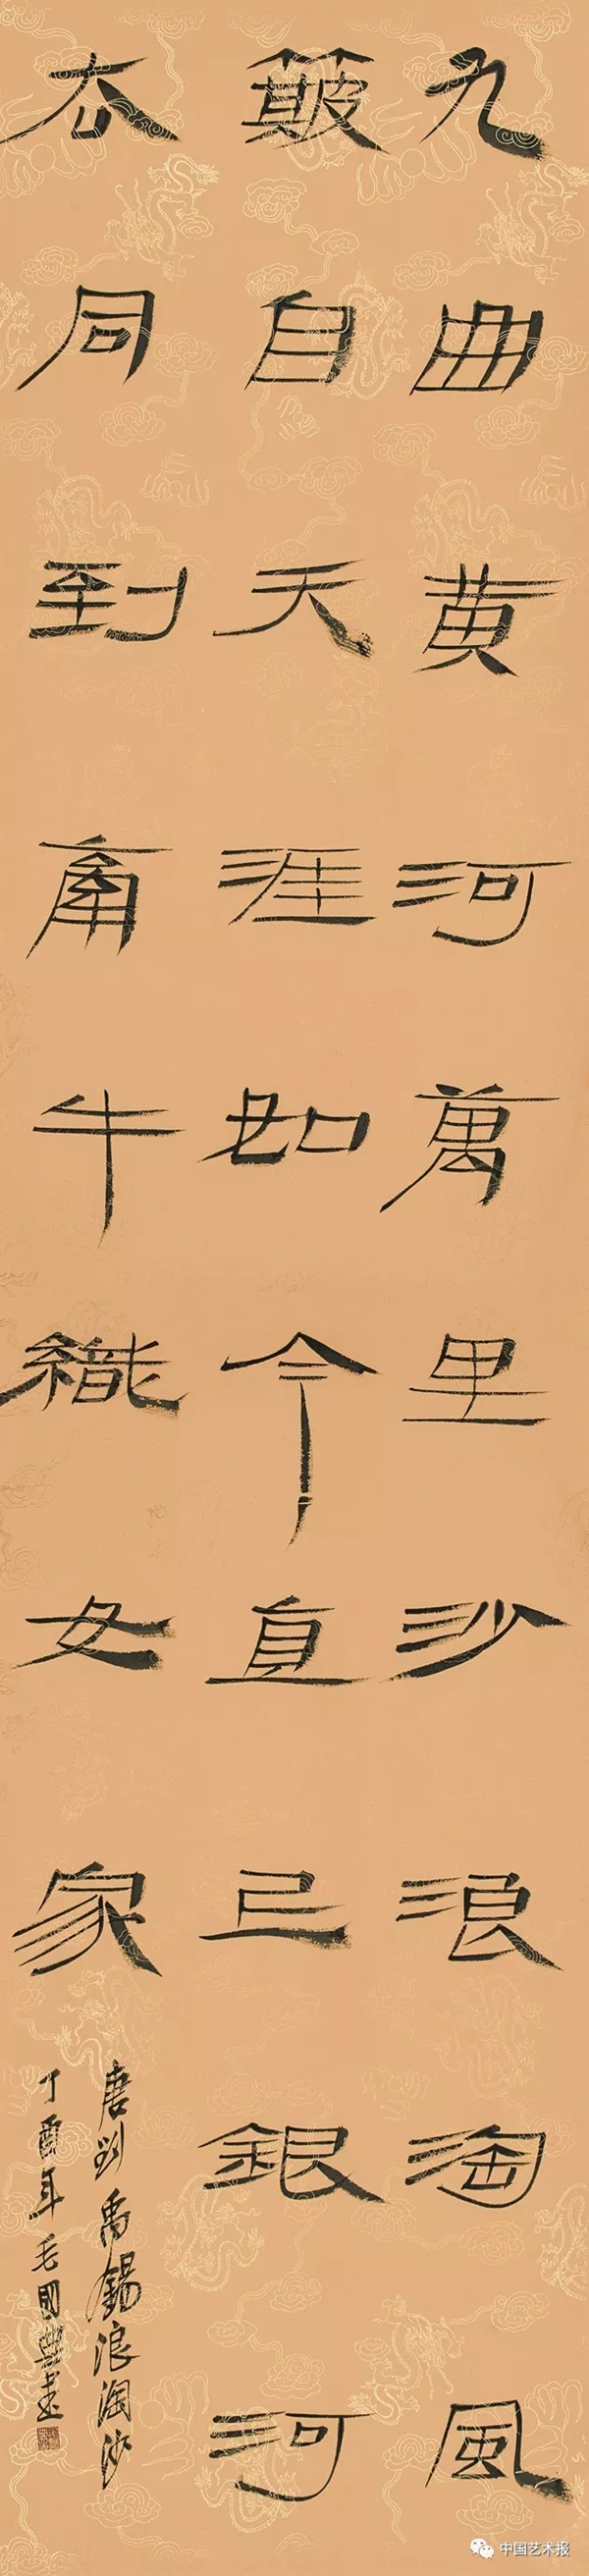 九曲黄河萬里沙浪淘風
簸自天涯如今直已銀河
去同到牽牛織女家
唐劉禹錫浪淘沙
丁酉年毛國典書
中国艺术报